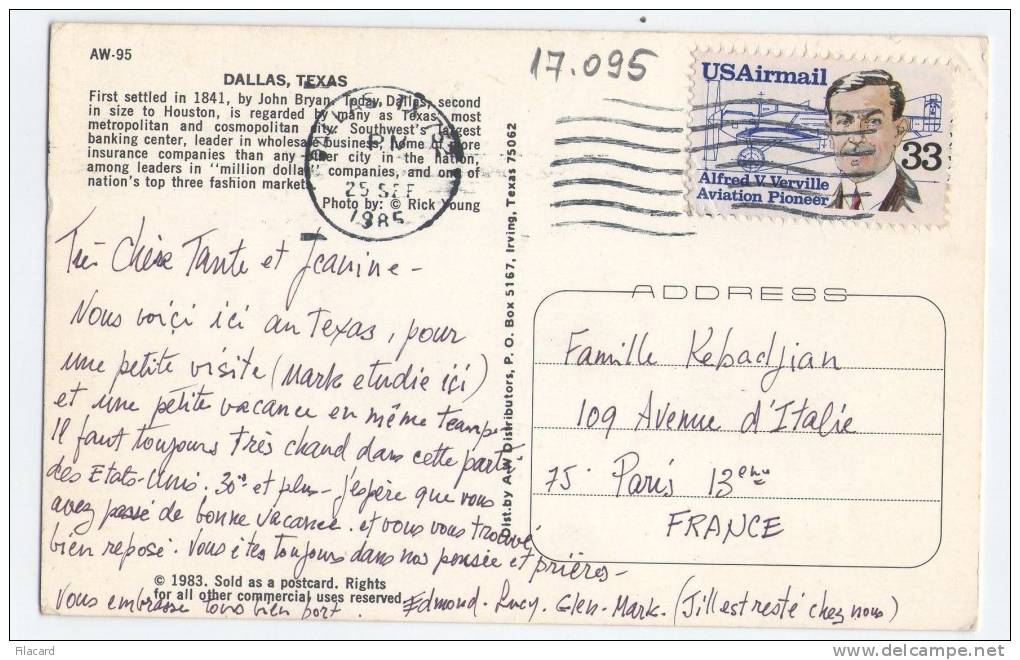 AW-95
DALLAS, TEXAS
First settled in 1841, by John Bryan. Today, Dallas, second
in size to Houston, is regarded by many as Texas' most
metropolitan and cosmopolitan city. Southwest's largest
banking center, leader in wholesale business, home of more
insurance companies than any other city in the nation,
among leaders in "million dollar" companies, and one of
nation's top three fashion markets.
Photo by: © Rick Young
DALLAS, TX
PM
25 SEP
1985
17.095
USAirmail
33
Alfred V. Verville
Aviation Pioneer
Très Chère Tante et Jeanine -
Nous voiçi ici au Texas, pour
une petite visite (Mark etudie içi)
et une petite vacance en même temps
Il faut toujours très chaud dans cette partie
des Etats-Unis. 30° et plus - j'espère que vous
avez passé de bonne vacance. et vous vous trouvé
bien reposé. Vous êtes toujours dans nos pensée et prières -
Vous embrasse tous bien fort. Edmond - Lucy - Glen - Mark. (Jill est resté chez nous)
Dist. by A-W Distributors, P. O. Box 5167, Irving, Texas 75062
ADDRESS
Famille Kebadjian
109 Avenue d'Italie
75. Paris 13eme
FRANCE
© 1983. Sold as a postcard. Rights
for all other commercial uses reserved.
Filacard
www.delcampe.net